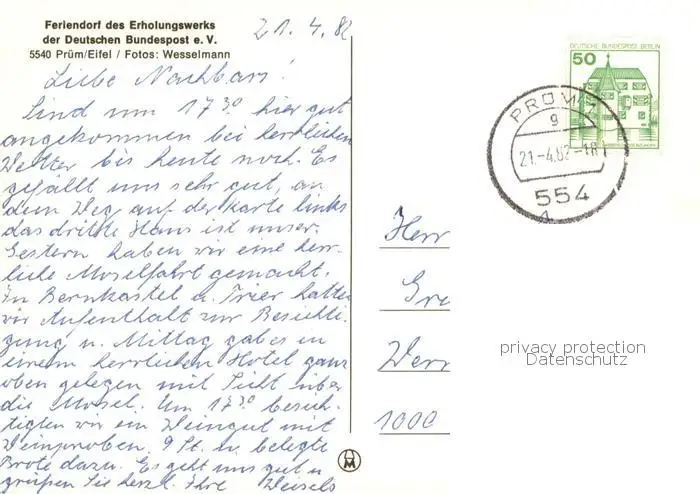 Feriendorf des Erholungswerks
der Deutschen Bundespost e. V.
5540 Prüm/Eifel / Fotos: Wesselmann
21. 4. 82
Liebe Nachbarn!
Sind um 17 30 hier gut
angekommen bei herrlichem
Wetter bis heute noch. Es
gefällt uns sehr gut, an
dem Weg auf der Karte links
das dritte Haus ist unser.
Gestern haben wir eine herr-
liche Moselfahrt gemacht.
In Bernkastel u. Trier hatten
wir Aufenthalt zur Besichti-
gung u. Mittag gab es in
einem herrlichen Hotel ganz
oben gelegen mit Sicht über
die Mosel. Um 17 30 besich-
tigten wir ein Weingut mit
Weinproben. 9 St. u. belegte
Brote dazu. Es geht uns gut u
grüßen Sie herzl. Ihre
DEUTSCHE BUNDESPOST BERLIN
50
PRÜM
g
21.-4.82-18
554
Herr
Gre
Wern
1000
privacy protection
Datenschutz